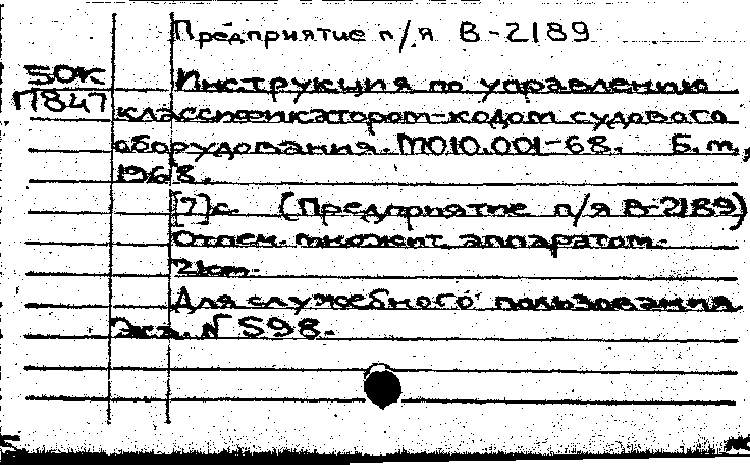 Предприятие п/я В-2189
50К
П847
Инструкция по управлению
классификатором-кодом судового
оборудования. МО10.001-68. Б.м.,
1968.
[7]с. (Предприятие п/я В-2189)
Отпеч. множит. аппаратом.
21см.
Для служебного пользования
Экз. № 598.